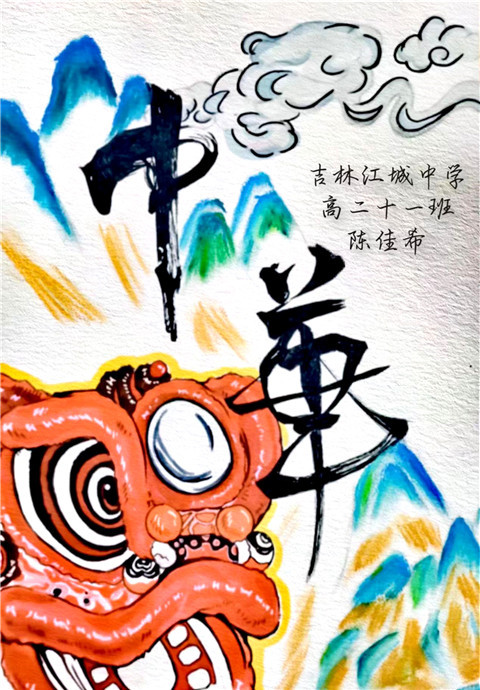 中華
吉林江城中学
高二十一班
陈佳希